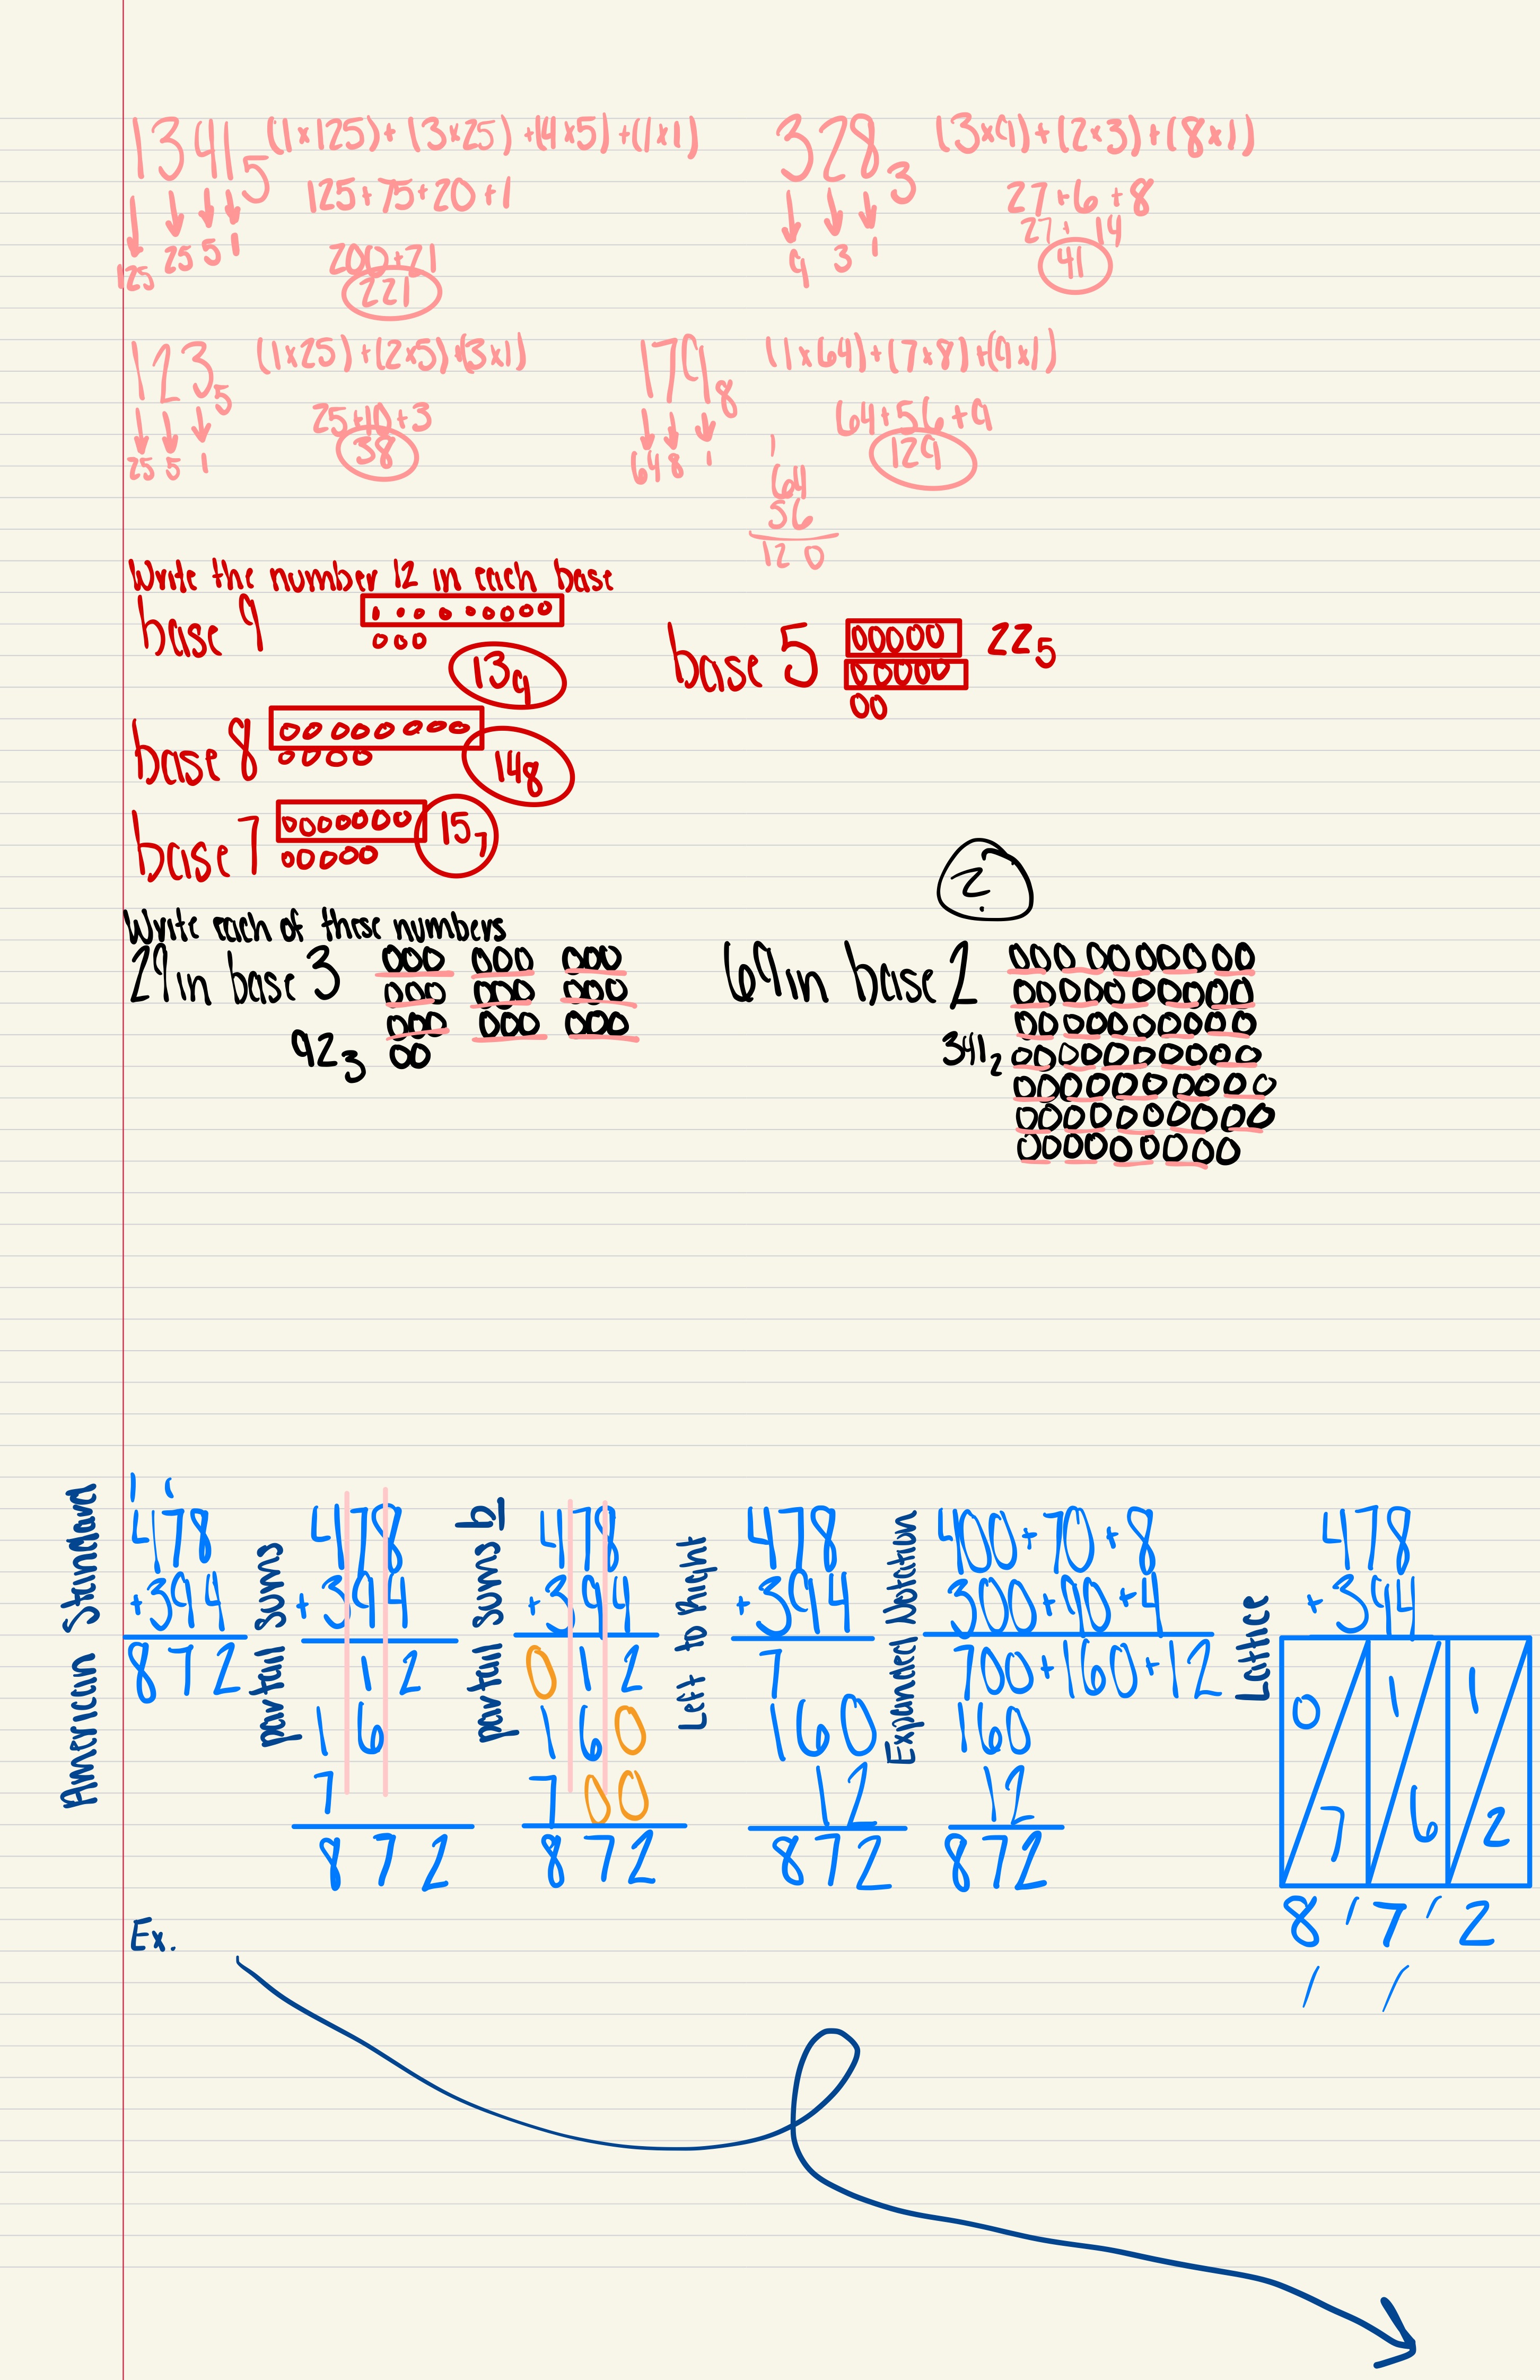 1341₅ (1×125)+(3×25)+(4×5)+(1×1)
125+75+20+1
125 25 5 1
200+21
221
328₃ (3×9)+(2×3)+(8×1)
27+6+8
27+14
9 3 1
41
123₅ (1×25)+(2×5)+(3×1)
25+10+3
38
25 5 1
179₈ (1×64)+(7×8)+(9×1)
64+56+9
129
64 8 1
1
64
56
120
Write the number 12 in each base
base 9
13₉
base 5 22₅
base 8
14₈
base 7 15₇
Write each of these numbers
29 in base 3
92₃
?
69 in base 2
341₂
American Standard
1 1
478
+394
872
partail sums
478
+394
12
16
7
872
partail sums b
478
+394
012
160
700
872
Left to Right
478
+394
7
160
12
872
Expanded Notation
400+70+8
300+90+4
700+160+12
160
12
872
Lattice
478
+394
0 1 1
7 6 2
8 ' 7 ' 2
Ex.